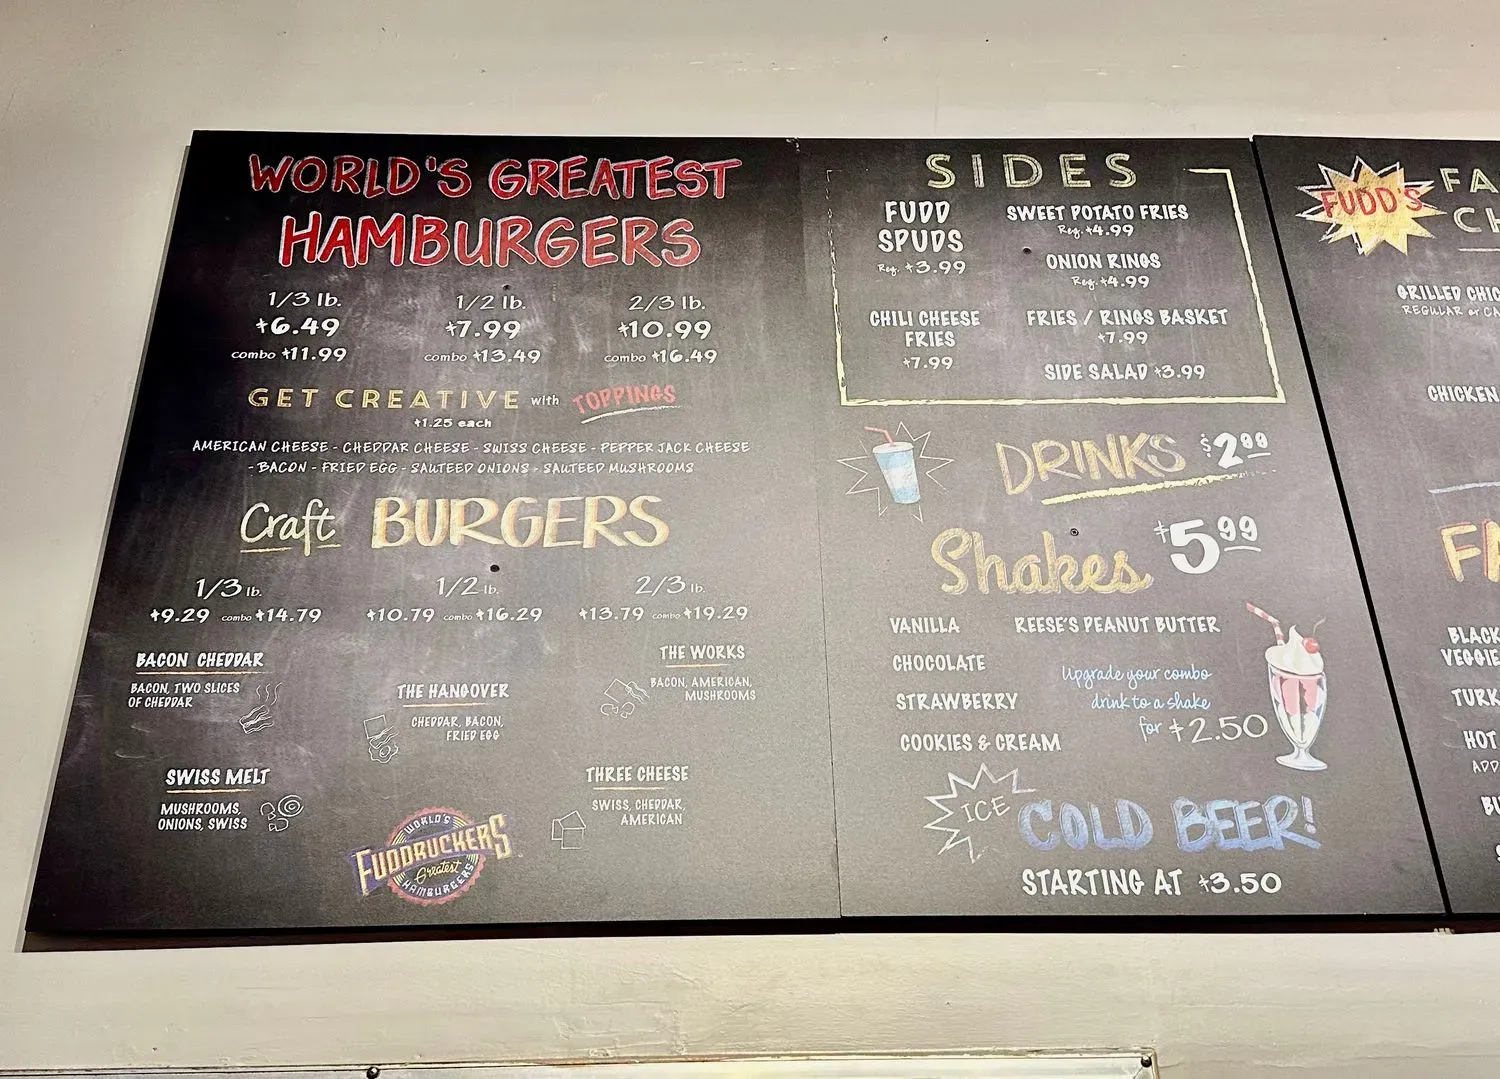 WORLD'S GREATEST
HAMBURGERS
1/3 lb.
$6.49
combo $11.99
1/2 lb.
$7.99
combo $13.49
2/3 lb.
$10.99
combo $16.49
GET CREATIVE with TOPPINGS
$1.25 each
AMERICAN CHEESE - CHEDDAR CHEESE - SWISS CHEESE - PEPPER JACK CHEESE
- BACON - FRIED EGG - SAUTEED ONIONS - SAUTEED MUSHROOMS
Craft BURGERS
1/3 lb.
$9.29 combo $14.79
1/2 lb.
$10.79 combo $16.29
2/3 lb.
$13.79 combo $19.29
BACON CHEDDAR
BACON, TWO SLICES
OF CHEDDAR
THE HANGOVER
CHEDDAR, BACON,
FRIED EGG
THE WORKS
BACON, AMERICAN,
MUSHROOMS
SWISS MELT
MUSHROOMS,
ONIONS, SWISS
THREE CHEESE
SWISS, CHEDDAR,
AMERICAN
WORLD'S
FUDDRUCKERS
Greatest
HAMBURGERS
SIDES
FUDD
SPUDS
Reg. $3.99
SWEET POTATO FRIES
Reg. $4.99
ONION RINGS
Reg. $4.99
CHILI CHEESE
FRIES
$7.99
FRIES / RINGS BASKET
$7.99
SIDE SALAD $3.99
DRINKS $2.99
Shakes $5.99
VANILLA
CHOCOLATE
STRAWBERRY
COOKIES & CREAM
REESE'S PEANUT BUTTER
Upgrade your combo
drink to a shake
for $2.50
ICE COLD BEER!
STARTING AT $3.50
FUDD'S
FA
CH
GRILLED CHIC
REGULAR or CA
CHICKEN
FA
BLACK
VEGGIE
TURK
HOT
ADD
BU
S